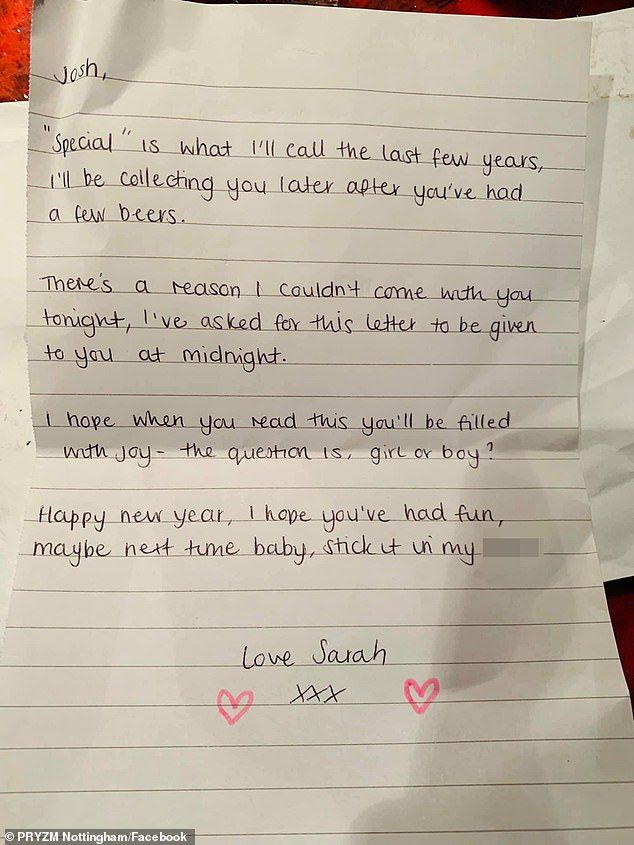 Josh,
"Special" is what I'll call the last few years,
I'll be collecting you later after you've had
a few beers.
There's a reason I couldn't come with you
tonight, I've asked for this letter to be given
to you at midnight.
I hope when you read this you'll be filled
with joy - the question is, girl or boy?
Happy new year, I hope you've had fun,
maybe next time baby, stick it in my
Love Sarah
xxx
© PRYZM Nottingham/Facebook